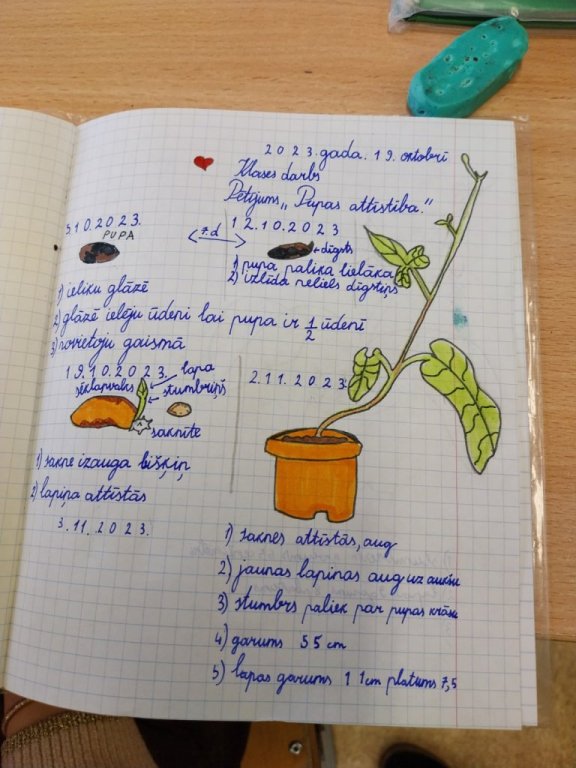 2023.gada. 19. oktobrī
Klases darbs
Pētījums „Pupas attīstība."
5.10.2023.
PUPA
7.d
12.10.2023
dīgsts
1) pupa palika lielāka
2) izlīda neliels dīgstiņš
1) ieliku glāzē
2) glāzē ielēju ūdeni lai pupa ir 1/2 ūdenī
3) novietoju gaismā
19.10.2023.
sēklapvalks
lapa
stumbriņš
saknīte
1) sakne izauga bišķiņ
2) lapiņa attīstās
3.11.2023.
2.11.2023.
1) saknes attīstās, aug
2) jaunas lapiņas aug uz augšu
3) stumbrs paliek par pupas krāsu
4) garums 55 cm
5) lapas garums 11cm platums 7,5